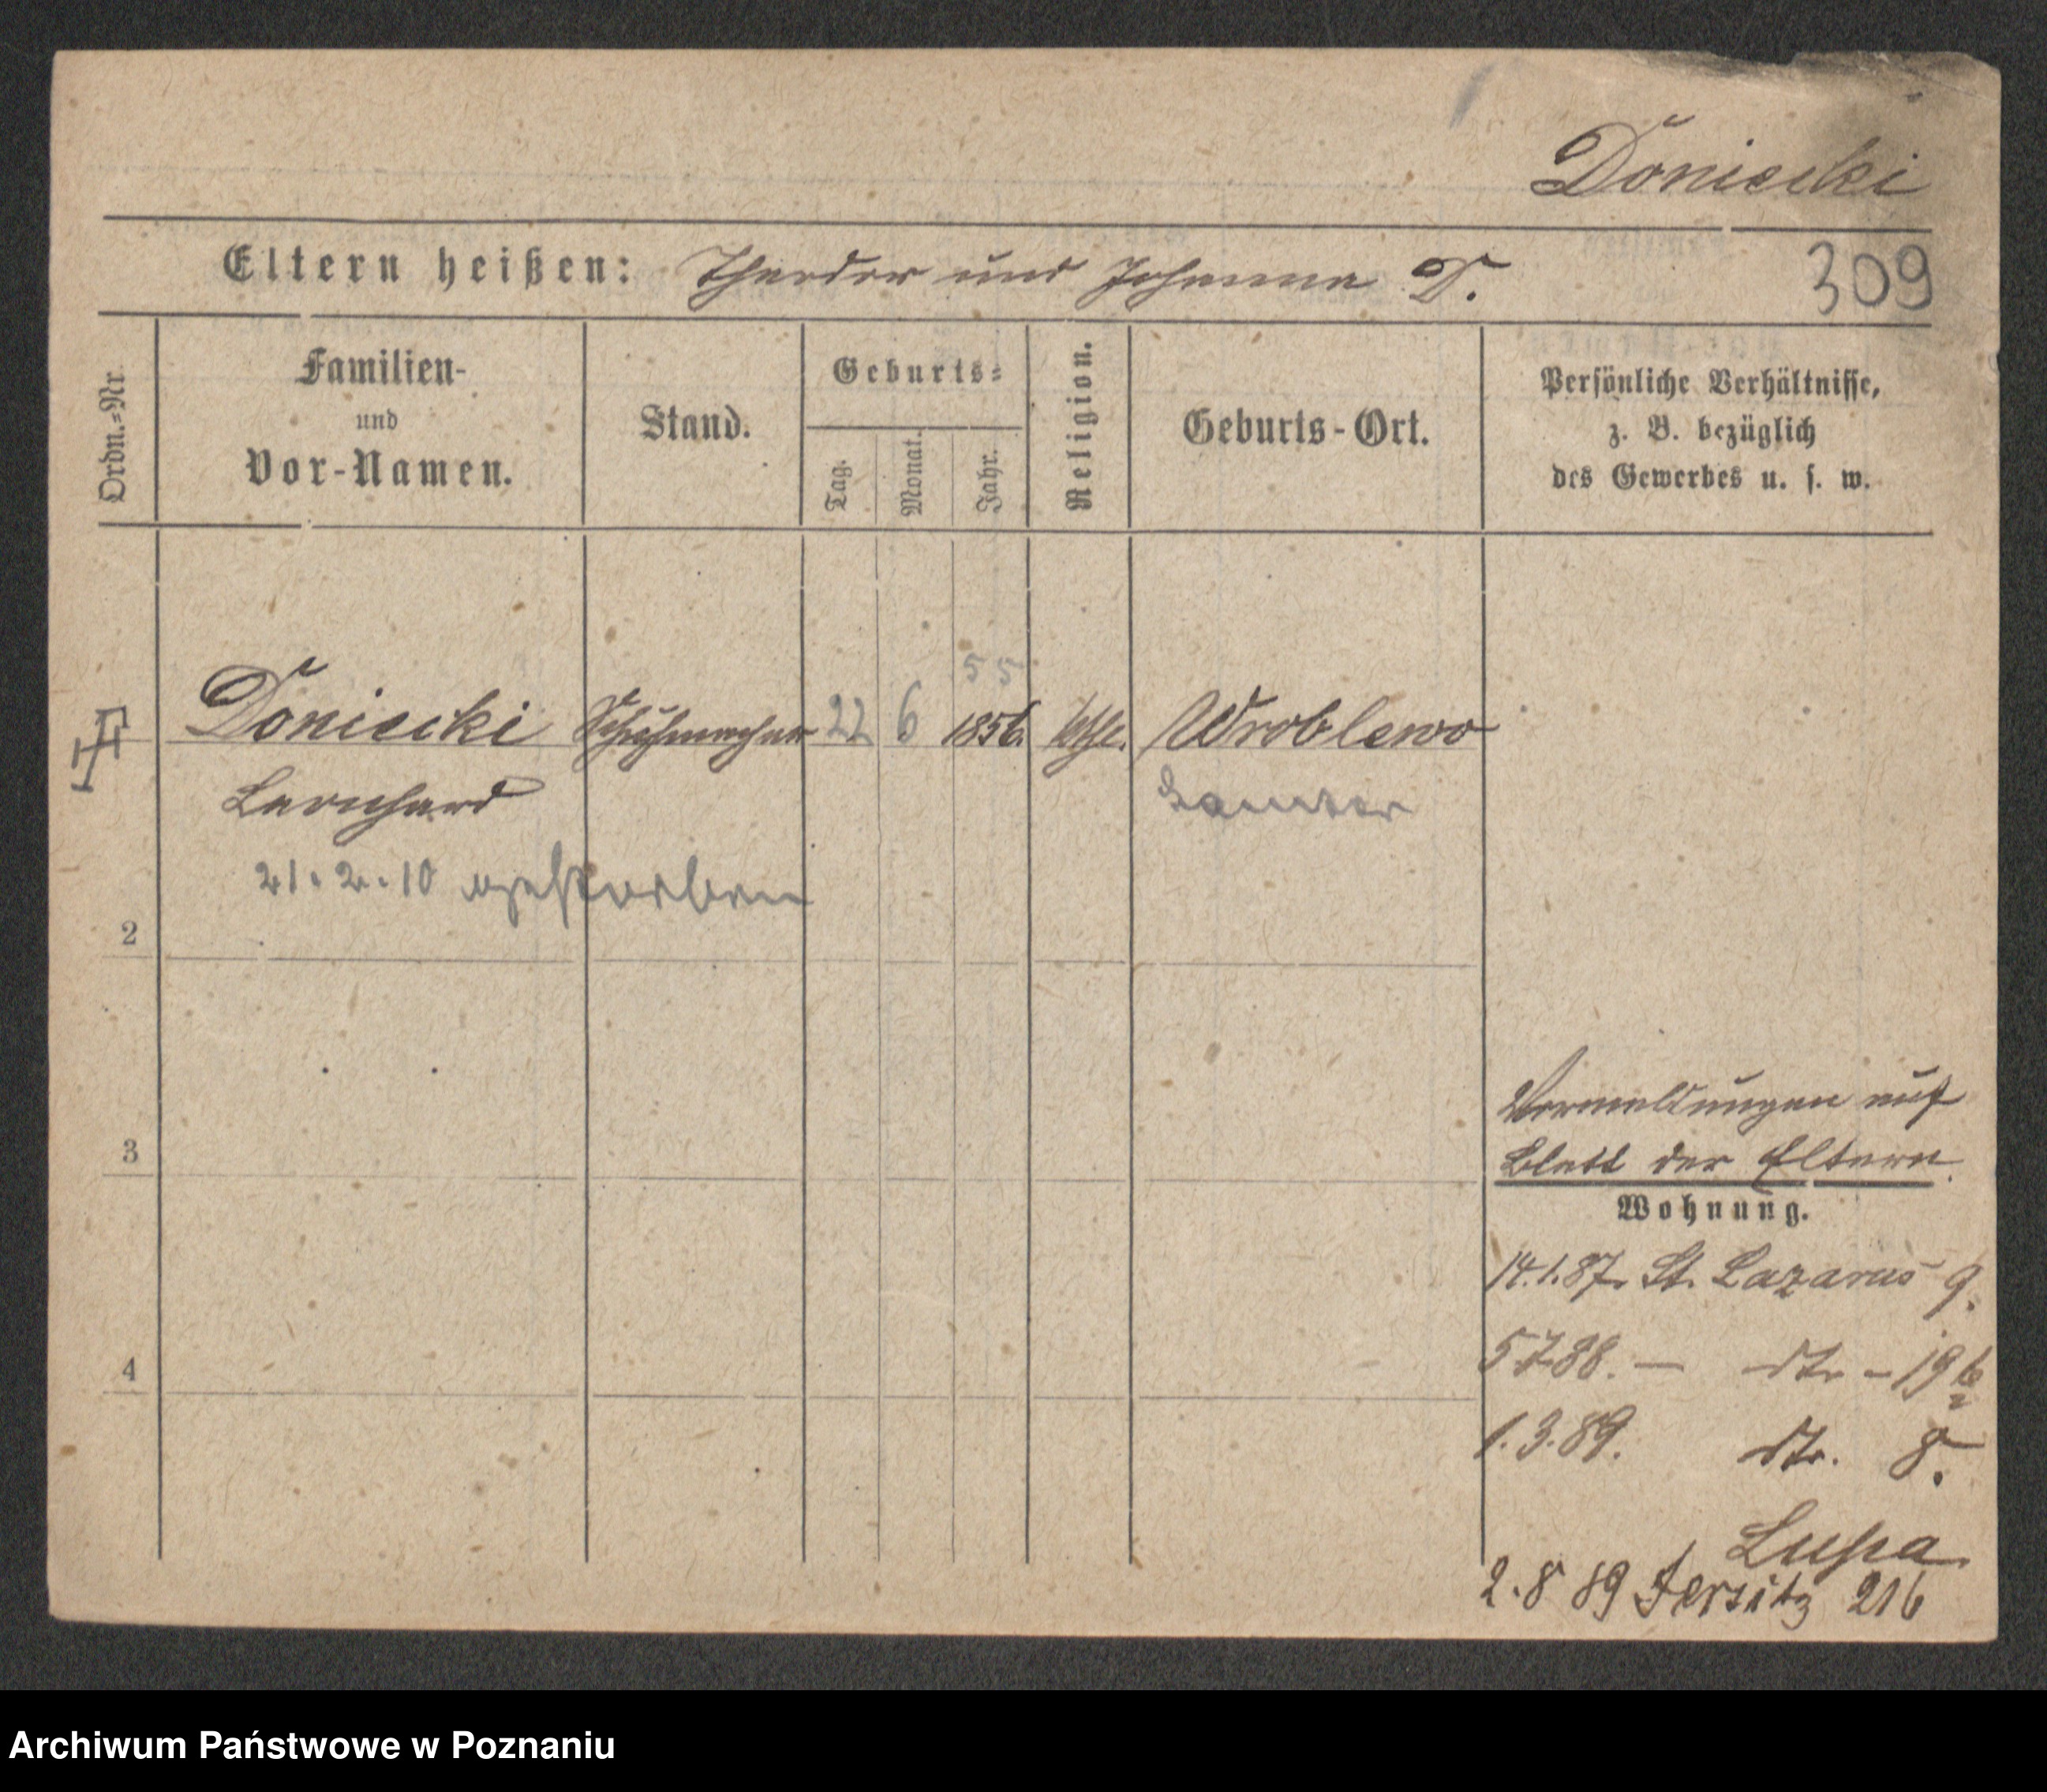 Doniecki
Eltern heißen: Theodor und Johanna D.
309
Ordn.=Nr.
Familien-
und
Vor-Namen.
Stand.
Geburts=
Tag.
Monat.
Jahr.
Religion.
Geburts-Ort.
Persönliche Verhältnisse,
z. B. bezüglich
des Gewerbes u. s. w.
55
Doniecki Schuhmacher 22 6 1856. kath. Wroblewo
Bernhard Samter
21. 2. 10 gestorben
2
3
4
Vormeldungen auf
Blatt der Eltern.
Wohnung.
14.1.87. St. Lazarus 9.
5 7 88. — dto - 19
1.3.89. dto. 8.
2. 8 89 Jersitz 216
Archiwum Państwowe w Poznaniu